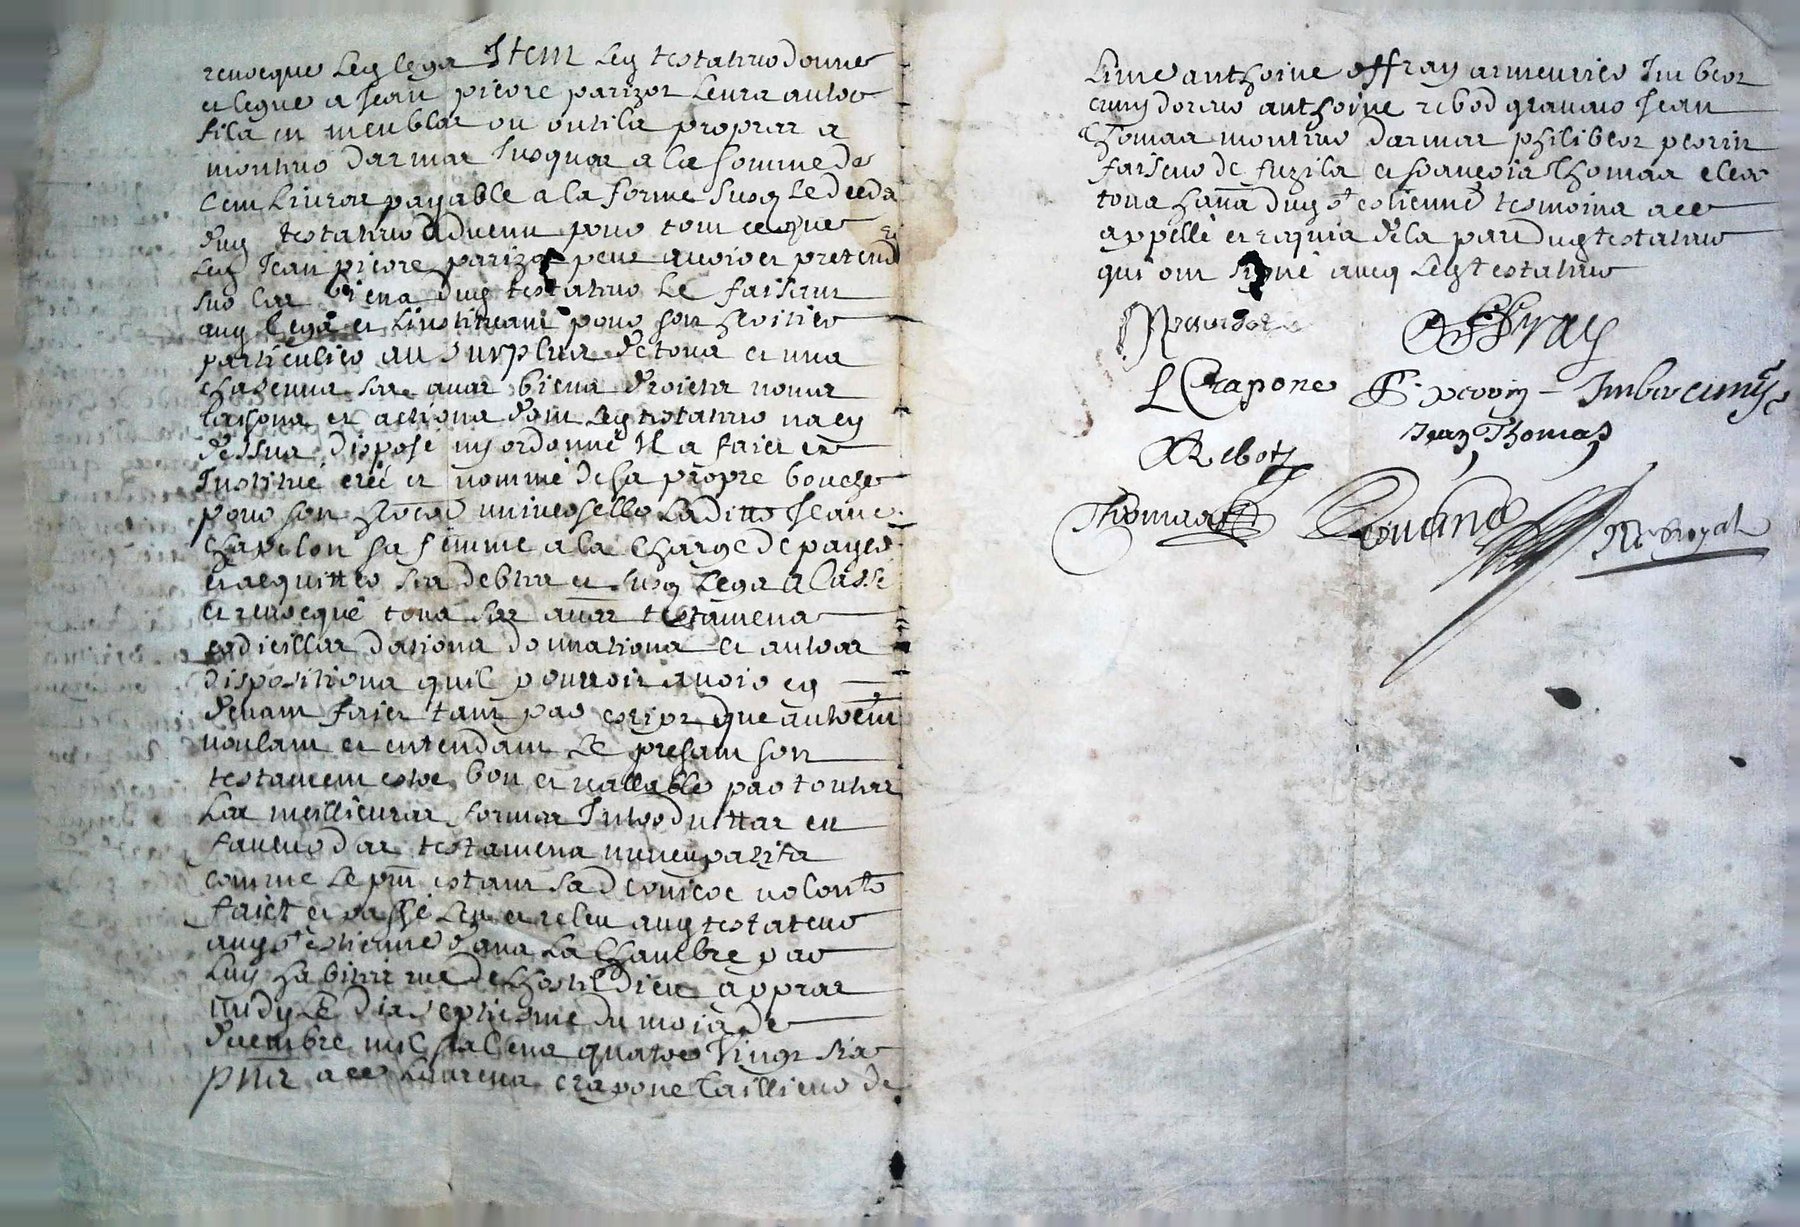 revocque led legat Item led testateur donne
et legue a Jean pierre parizot leurs autre
fils en meubles ou outils propres a
monteur darmes Jusques a la somme de
Cent Livres payable a la forme susd le deceds
dud testateur advenu pour tout ce que
led Jean pierre parizot peut avoir et pretend
sur les biens dud testateur le faisant
aud legat et linstituant pour son heritier
particulier au surplus de tous et uns
chascuns ses autres biens droicts noms
raisons et actions dont led testateur na cy
dessus dispose ny ordonné Il a faict et
Institue créé et nommé de sa propre bouche
pour son universelle Laditte Jeane
chapelon sa femme a la charge de payer
et acquitter ses debtes et susd legats Cassé
et revocqué tous ses autres testaments
codicilles dations donnations et autres
dispositions quil pourroit avoir cy
devant faict tant par escript que autremt
voulant et entendant le present son
testament estre bon et vallable par toutes
les meillieures formes Introduittes en
faveur des testaments nuncupatifs
comme le pnt estant sa derniere volonte
faict et passé leu et releu aud testateur
aud st estienne dans la chambre par
luy habitée rue de lhostel dieu apprès
midy le dix septiesme du mois de
decembre mil six cens quatre vingt six
pnts a ce Laurens crapone taillieur de
Lime anthoine offray armeurier Imbert
cuny doreur anthoine rebod graveur Jean
Thomas monteur darmes philibert perrin
faiseur de fuzils et francois Thomas clerc
tous hans dud st estienne tesmoins a ce
appellé et requis de la part dud testateur
qui ont signé avecq led testateur
Offray
L Crapone P. perrin Imber cuny
Jean Thomas
A Rebod
Thomas Nre Royal